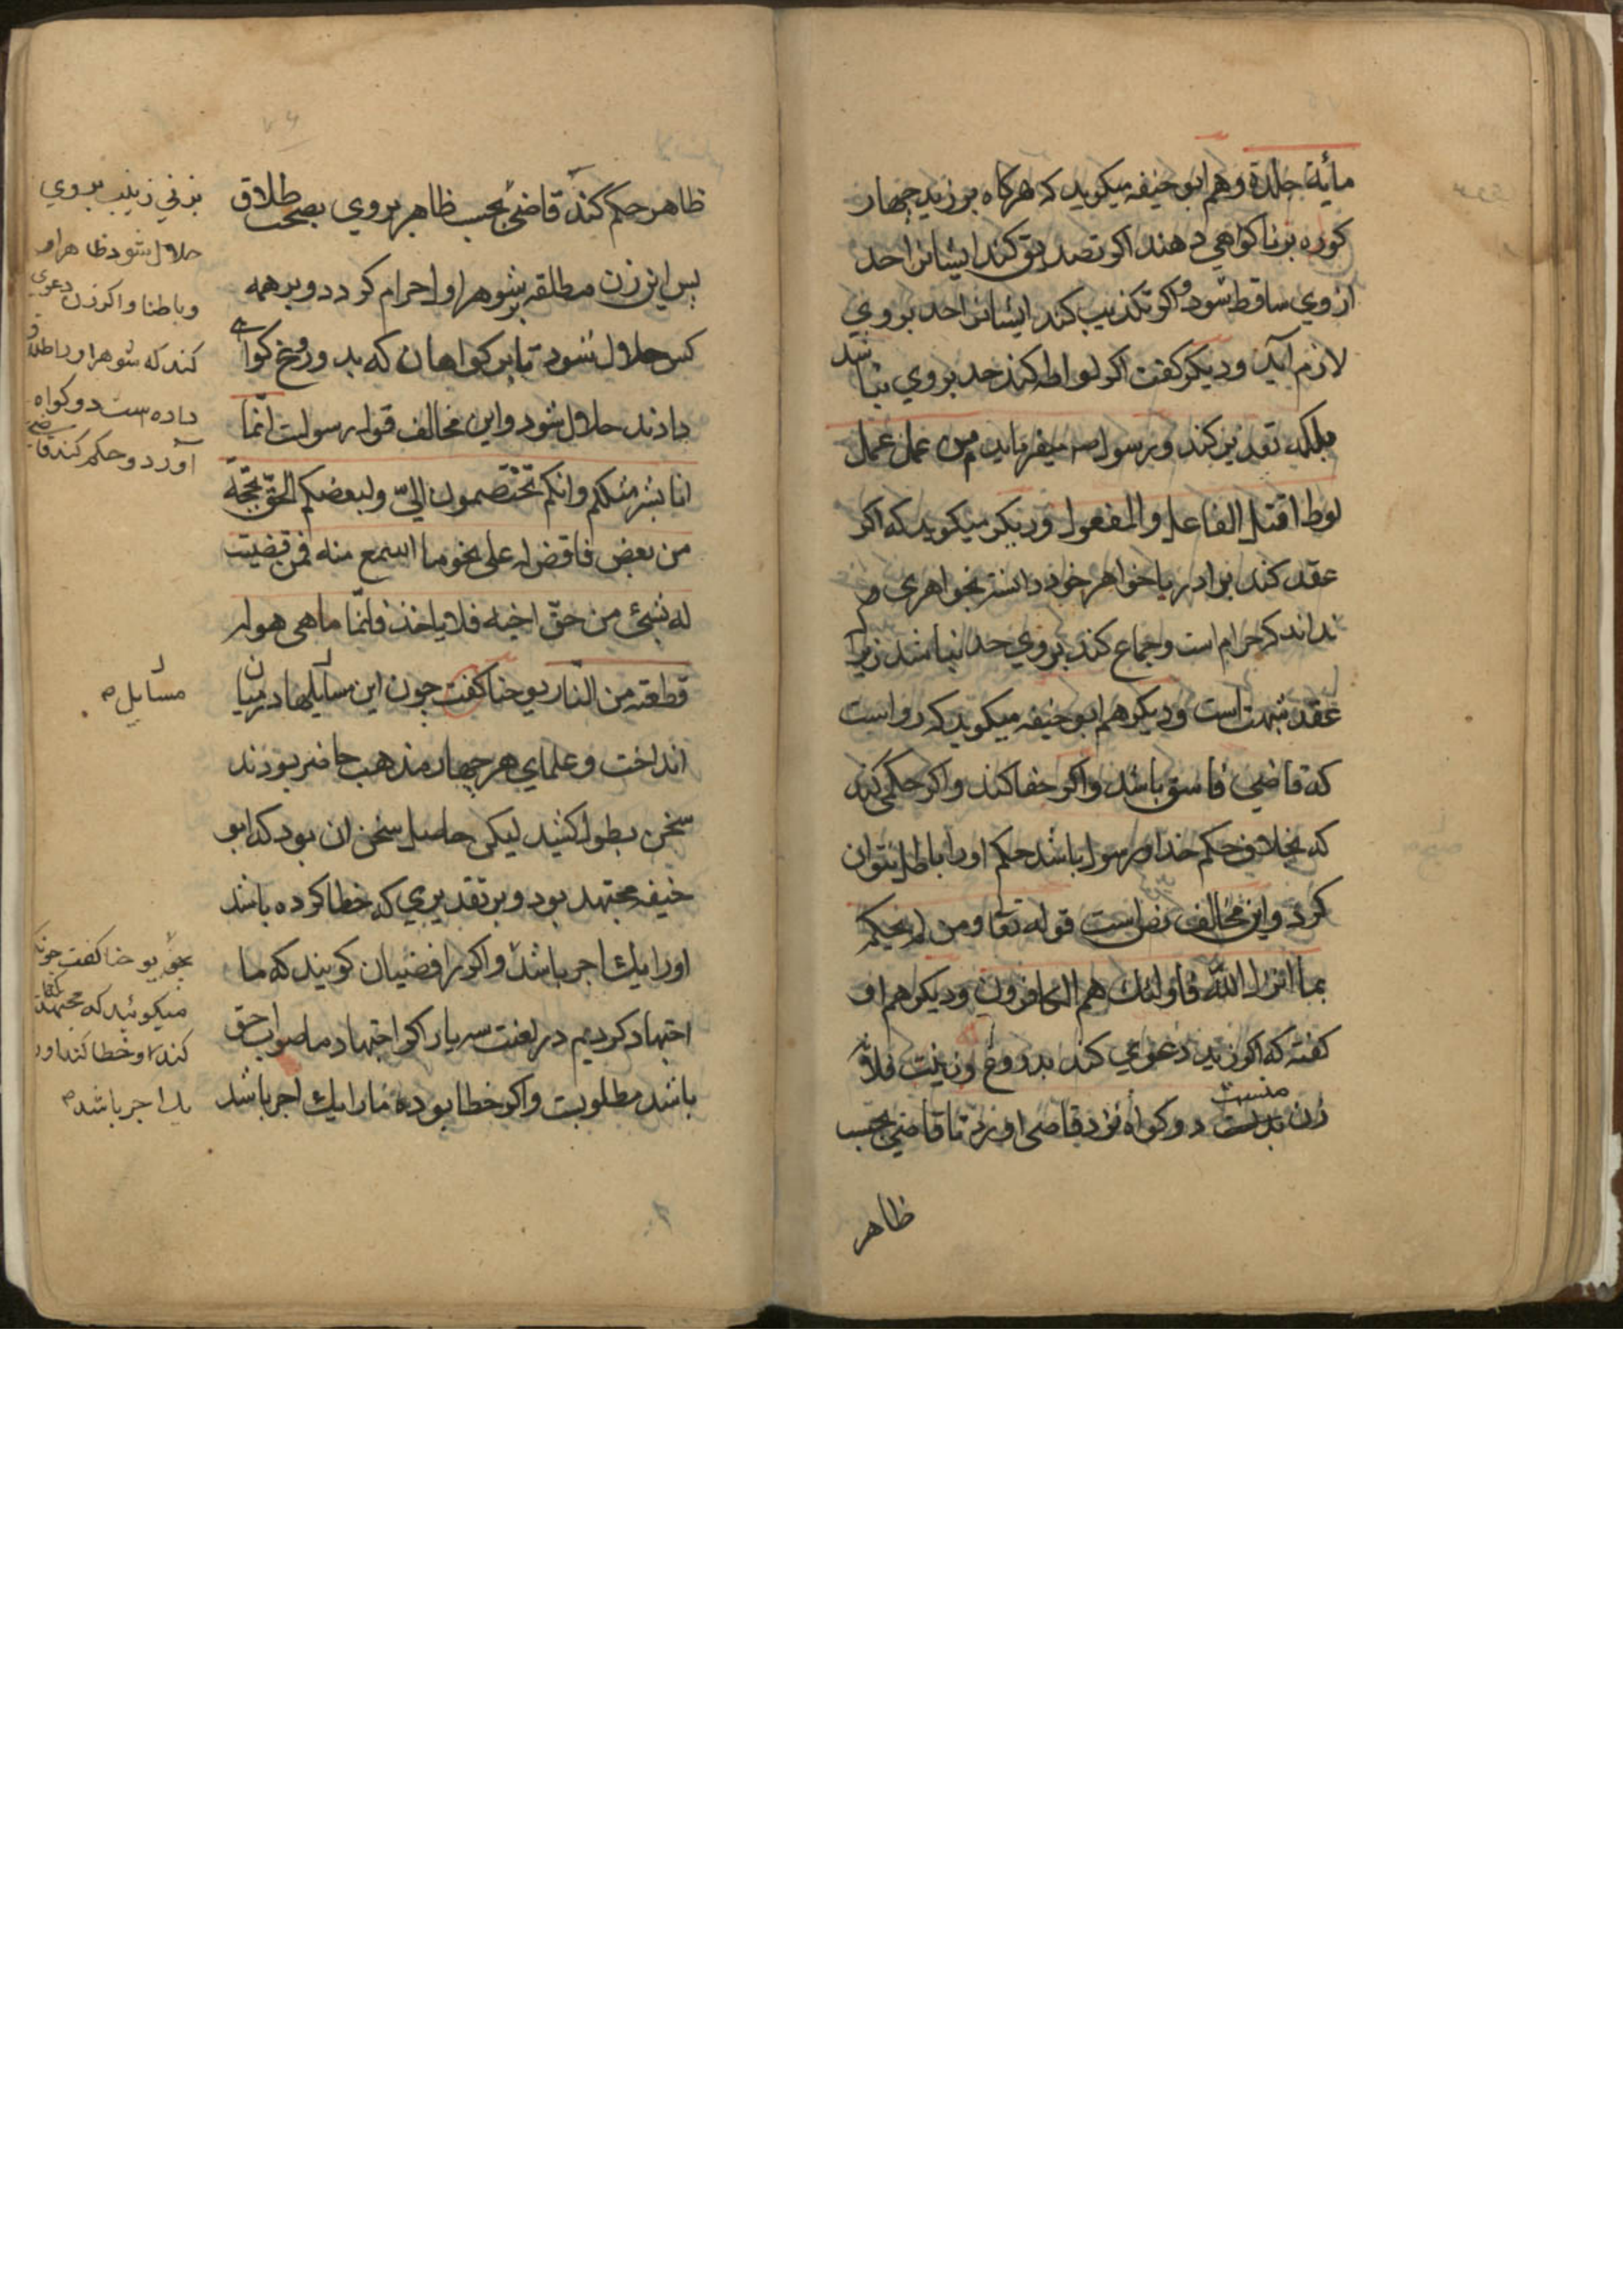 مأیة جلدة و هم ابو حنیفه میکوید که هرکاه بر زید چهار
کوره بزنا کواهی دهند اکر تصدیق کند ایشانرا حد
از وی ساقط شود و اکر تکذیب کند ایشانرا حد بر وی
لازم آید و دیکر کفت اکر لواطه کند حد بر وی نباشد
بلکه تعذیر کند و رسول میفرماید من عمل عمل
لوط اقتل الفاعل و المفعول و دیکر میکوید که اکر
عقد کند برادر یا خواهر خود دانسته بخواهری
نداند که حرام است و جماع کند بر وی حد نباشد زیرا
عقد شبهت است و دیکر هم ابو حنیفه میکوید که رواست
که قاضی فاسق باشد و اکر خفا کند و اکر حکمی کند
که بخلاف حکم خدا و رسول باشد حکم او را باطل نتوان
کرد و این مخالف نص است قوله تعا و من لم یحکم
بما انزل الله فاولئک هم الکافرون و دیکر هم او
کفته که اکر زید دعوی کند بدروغ زینت فلانه
زن منست دو کواه نزد قاضی اورد تا قاضی بحسب
ظاهر
ظاهر حکم کند قاضی بحسب ظاهر بر وی بصحت طلاق
پس این زن مطلقه بشوهر او احرام کردد و بر همه
کس حلال شود تا بر کواهان که بدروغ کواهی
دادند حلال شود و این مخالف قول رسولست انّما
انا بشر مثلکم و انکم تختصمون الیّ و لبعضکم الحق بحجّته
من بعض فاقض له علی نحو ما اسمع منه فمن قضیت
له بشیٔ من حقّ اخیه فلا یاخذ فانّما ماهی هوله
قطعة من النّار یوحنا کفت چون این مسایلها در میان
انداخت و علمای هر چهار مذهب حاضر بودند
سخن بطول کشید لیکن حاصل سخن ان بود که ابو
حنیفه مجتهد بود و بر تقدیری که خطا کرده باشد
او را یک اجر باشد و اکر رافضیان کویند که ما
اجتهاد کردیم در لعنت سه یار اکر اجتهاد ما صواب حق
باشد مطلوبست و اکر خطا بوده ما را یک اجر باشد
بزنی زینب بر وی
حلال شود ظاهرا و
و باطنا و اکر زن دعوی
کند که شوهر او را طلاق
داده است دو کواه
آورد و حکم کند قاضی
مسایل
یوحنا کفت چونکه
میکوئید که مجتهد
کند او خطا کند او را
یک اجر باشد